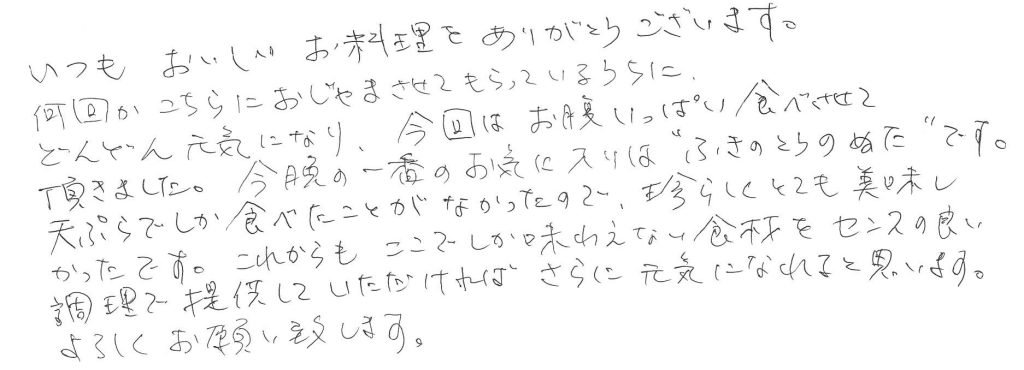 いつも おいしい お料理を ありがとうございます。
何回か こちらに おじゃまさせて もらっているうちに、
どんどん 元気になり、今回は お腹いっぱい 食べさせて
頂きました。今晩の一番のお気に入りは“ふきのとうのぬた”です。
天ぷらでしか食べたことがなかったので、珍らしくとても美味し
かったです。これからも ここでしか味わえない食材をセンスの良い
調理で提供していただければ さらに元気になれると思います。
よろしく お願い致します。